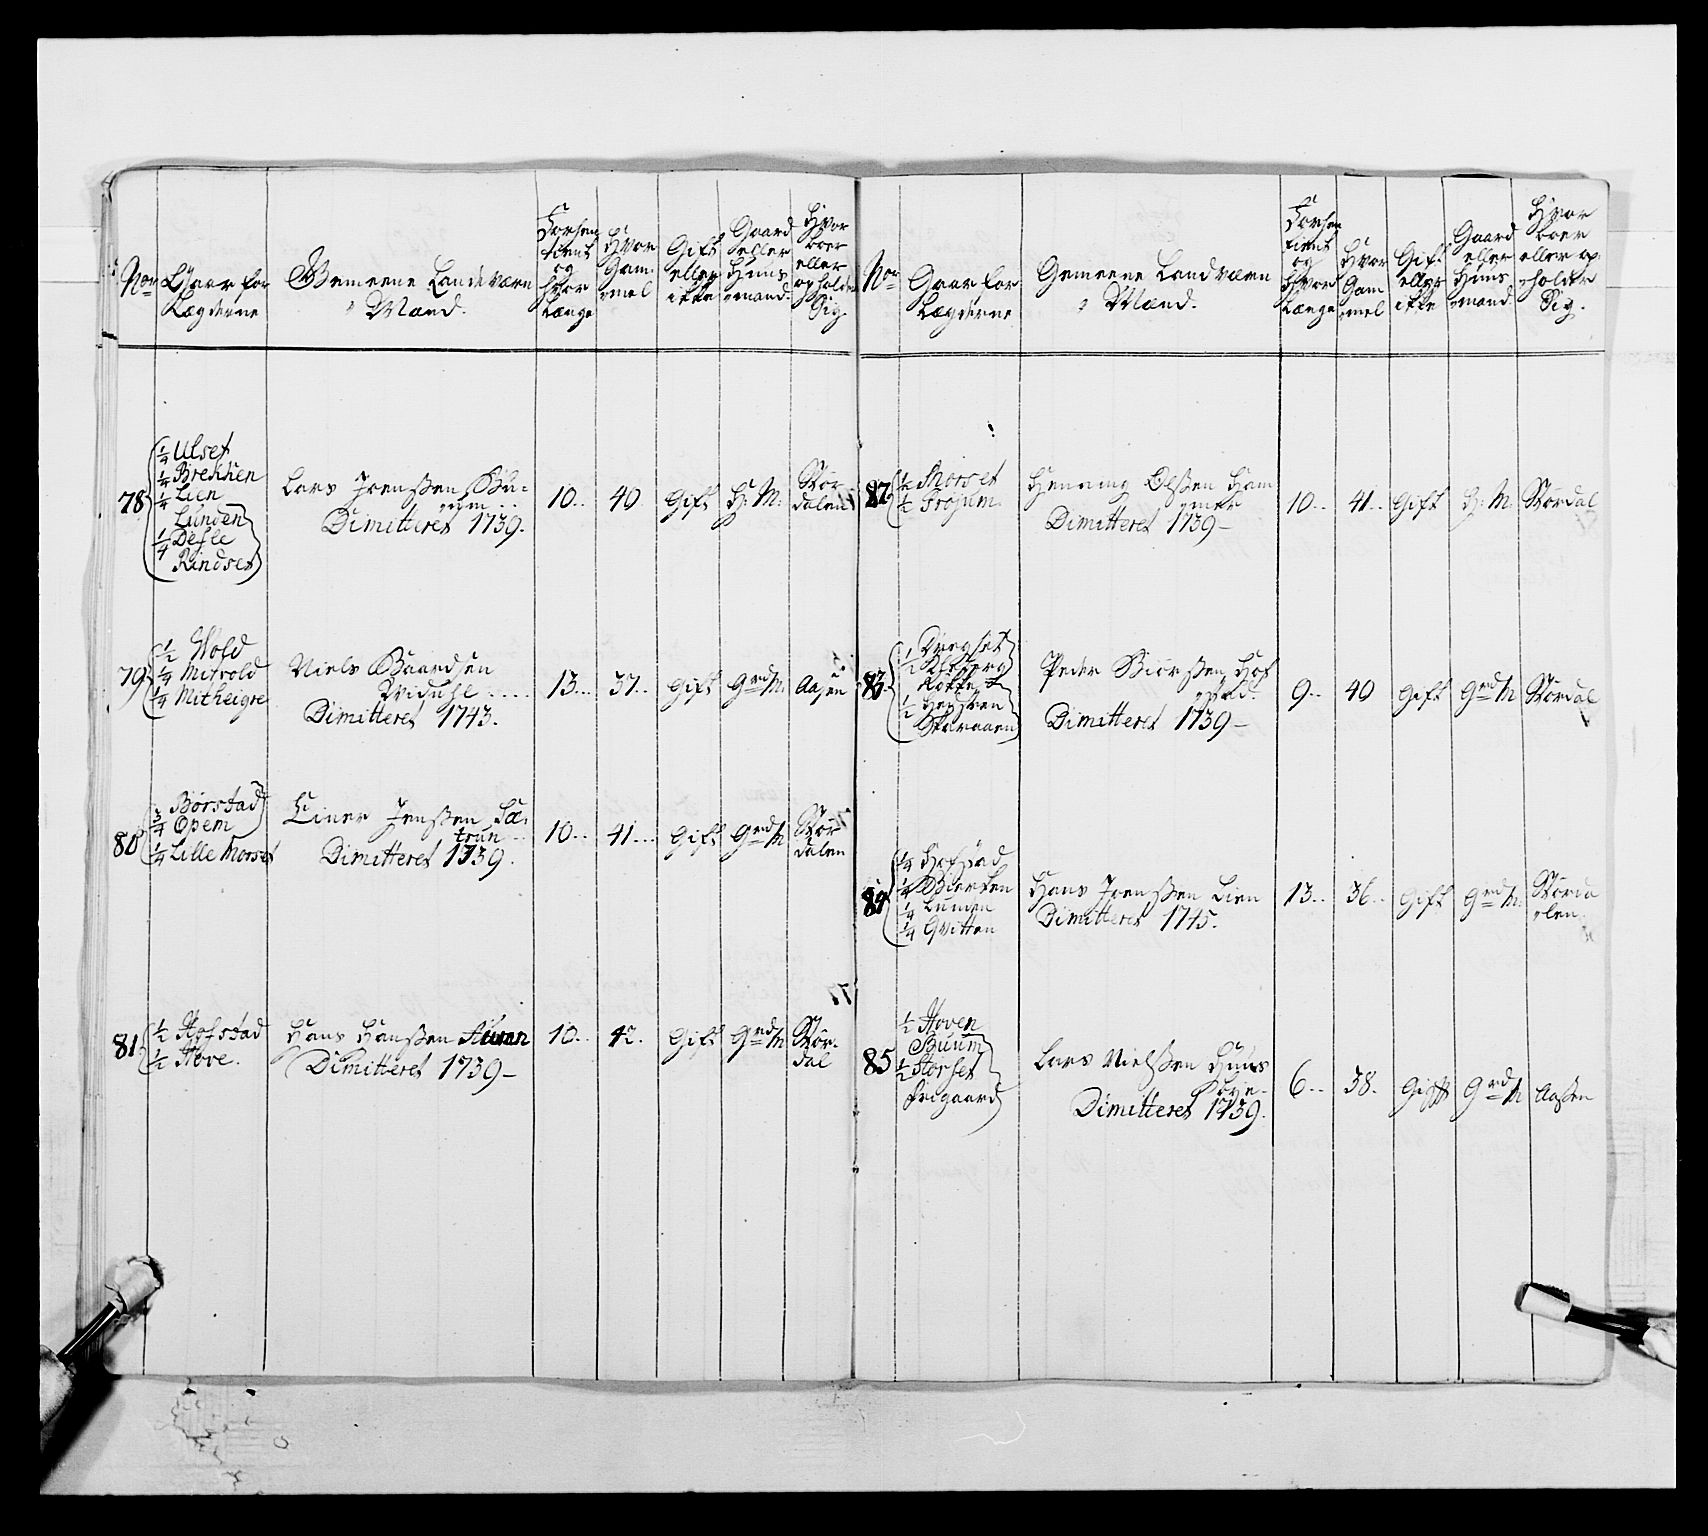 Nom
Gaar for
Lægderne
Gemeene Landeværn
Mænd.
Forhen
tient
og
hvor
Længe
Hvor
Gam:
mel
Gift
eller
ikke
Gaard
eller
Huus
mand.
Hvor
boer
eller
opholder
Sig
78
1/4 Ulset
1/4 Brekken
1/4 Lien
Lunden
1/4 Defle
Rindset
Lars Joenssen Bu-
rum
Dimitteret 1739.
10..
40
Gift
H: M:
Stør
dalen
79
1/2 Wold
1/4 Mitvold
1/4 Mitheigre
Niels Baardsen
Dimitteret 1743.
13...
37..
Gift
Grd M:
Aasen
80
Børstad
3/4 Opem
1/4 Lille Morset
Einer Jenssen Sæ-
trun
Dimitteret 1739.
10..
41...
Gift
Grd M
Stør
dalen
81
1/2 Hofstad
1/2 Hove.
Hans Hanssen Auran
Dimitteret 1739-
10..
42.
Gift
Grd M
Stør-
dal
Nor
Gaar for
Lægderne
Gemeene Landværn
Mænd.
Forhen
tient
og
hvor
Længe
Hvor
Gam
mel
Gift
eller
ikke
Gaard
eller
Huus
mand
Hvor
boer
eller op
holder
Sig.
82
1/2 Morset
1/2 Frojum
Henning Olssen Ham
mer
Dimitteret 1739-
10..
41..
Gift
H: M:
Størdal
83
Dregset
1/2 Kleberg
Røkke
1/2
Peder Biørssen Hof
Dimitteret 1739-
9..
40
Gift
Grd M
Størdal
84
1/4 Hofstad
1/4 Biercken
1/4 Lunden
1/4 Qvitten
Hans Joenssen Lien
Dimitteret 1745.
13..
36..
Gift
Grd M:
Størda
len.
85
1/2 Hoven
Buum
1/2 Storset
Frigaard
Lars Nielssen Huus
bye-
Dimitteret 1739.
6..
38.
Gift
Grd M
Aassen